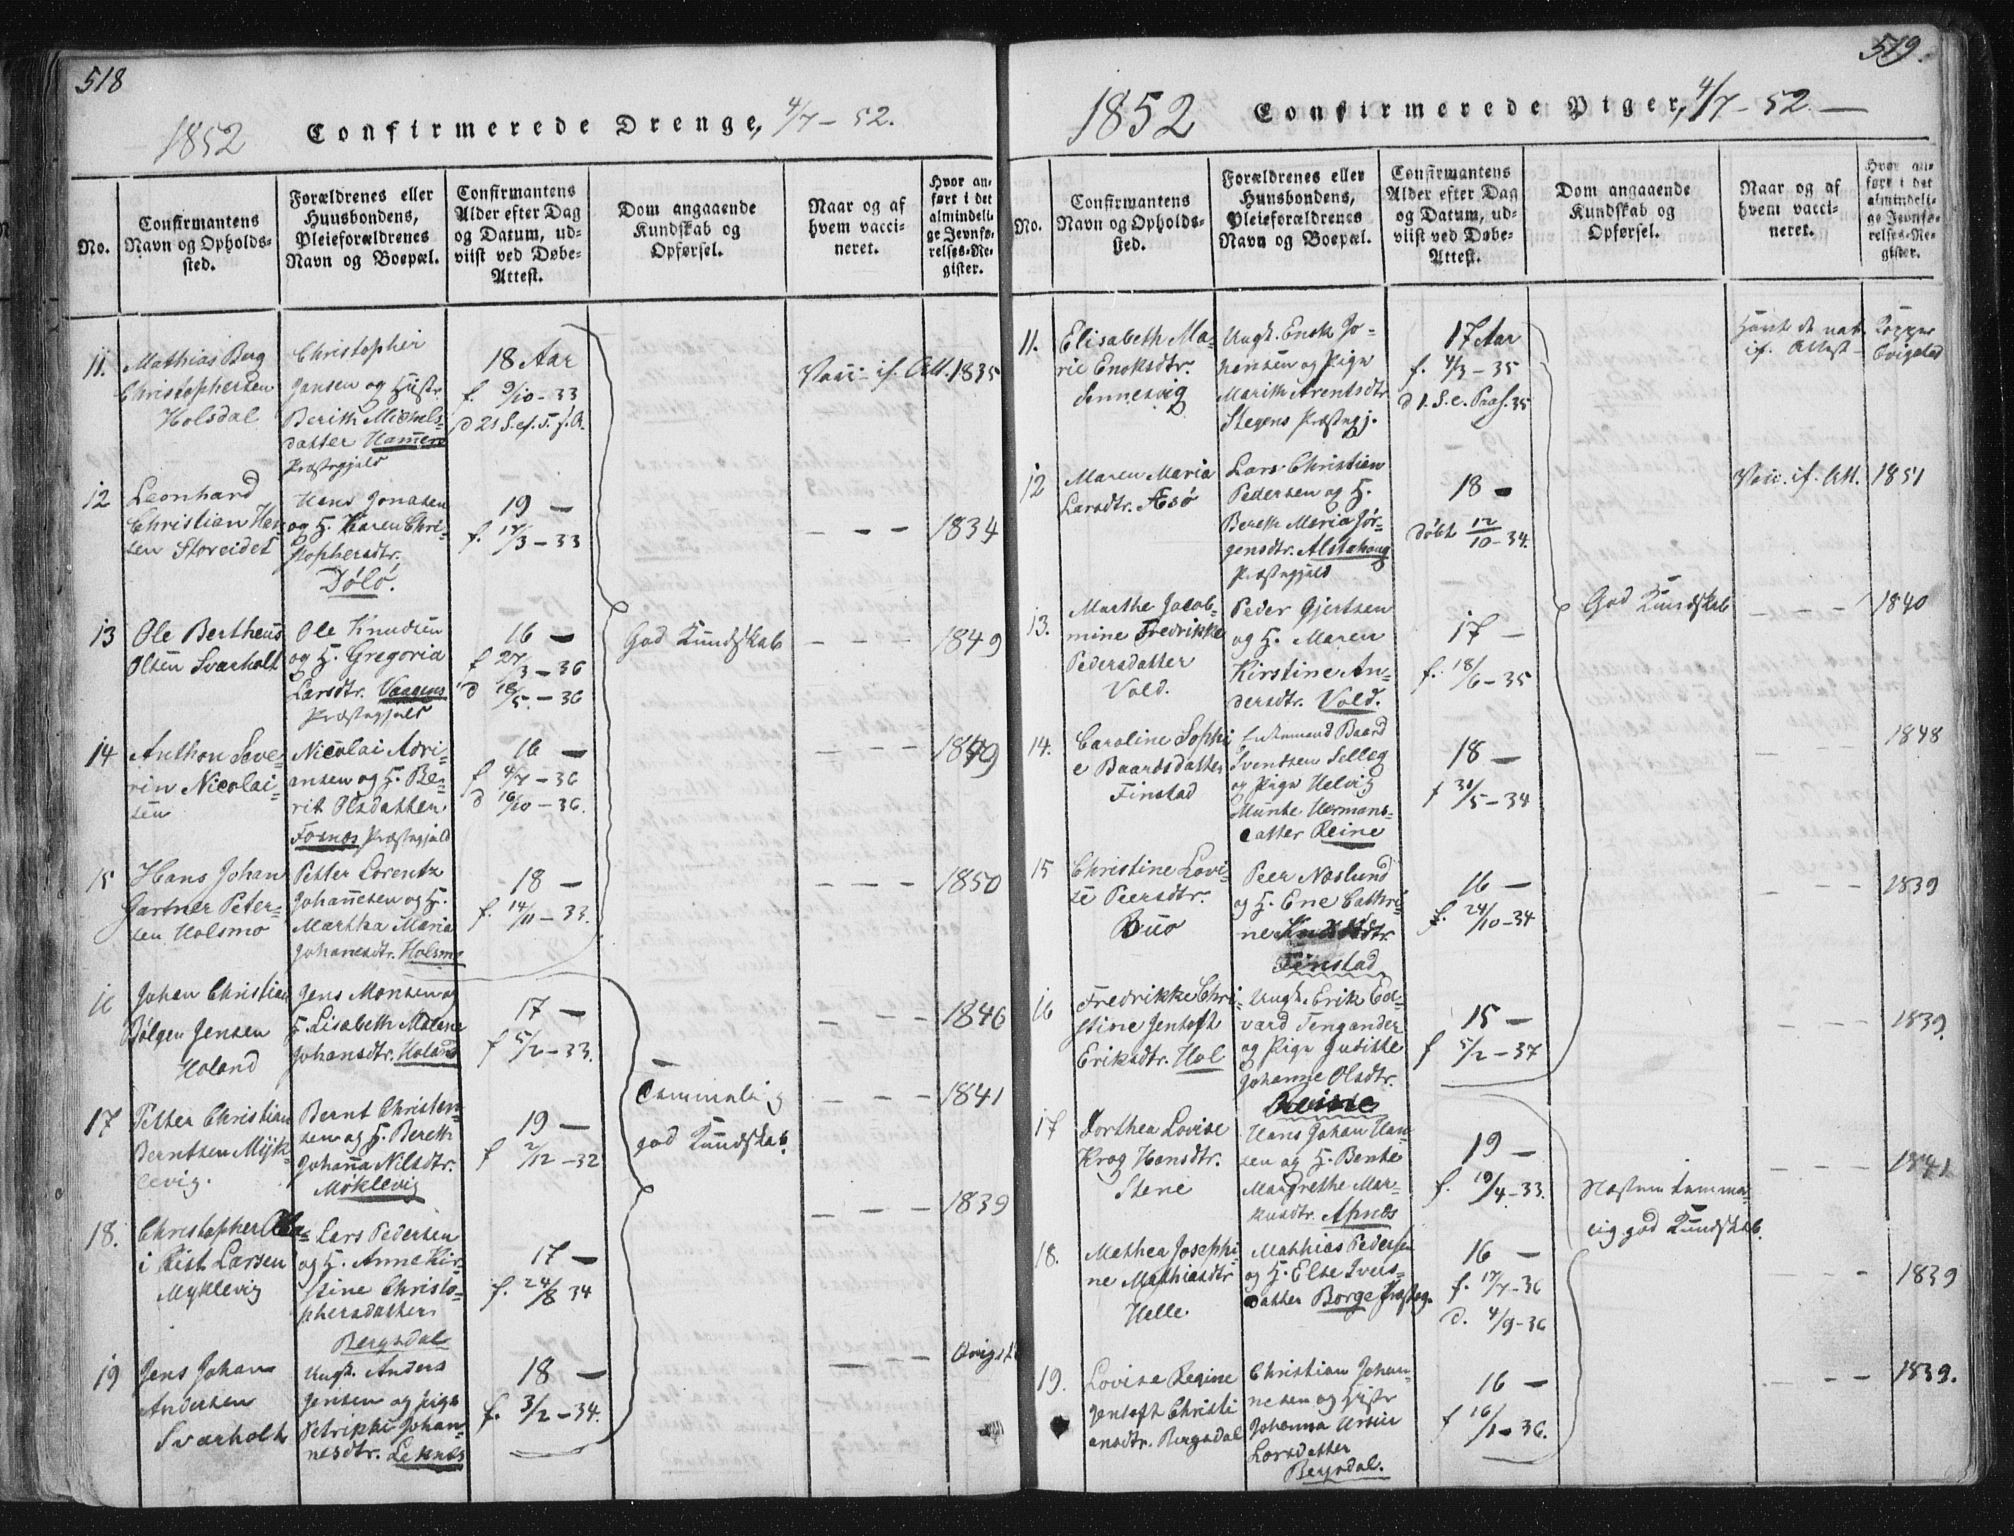 518
1852 Confirmerede Drenge, 4/7 - 52.
No.
Confirmantens
Navn og Opholds-
sted.
Forældrenes eller
Huusbondens,
Pleieforældrenes
Navn og Boepæl.
Confirmantens
Alder efter Dag
og Datum, ud-
viist ved Døbe-
Attest.
Dom angaaende
Kundskab og
Opførsel.
Naar og af
hvem vacci-
neret.
Hvor an-
ført i det
almindeli-
ge Jevnfø-
relses-Re-
gister.
11.
Mathias Berg
Christophersen
Holsdal
Christopher
Jansen og Hustr.
Berith Mickels-
datter Hammerø
Præstegjeld
18 Aar
f. 9/10 - 33
Vacc. if. Att. 1835
12
Leonhard
Christian Han-
sen Storeidet
Hans Jonasen
og H. Karen Chri-
stophersdtr.
Dølø.
19 —
f. 17/3 - 33
— — — 1834
13
Ole Bertheus
Olsen Svarholt
Ole Knudsen
og H. Gregoria
Larsdtr. Vaagens
Præstegjeld
16 —
f 27/3 - 36
d 18/5. - 36
God Kundskab
— — — 1849
14
Anthon Seve-
rin Nicolai-
sen
Nicolai Adri-
ansen og H. Be-
rit Olsdatter
Fosnæs Præstegjeld
16 —
f 4/7 - 36
d 16/10 - 36.
— — — 1849
15
Hans Johan
Gartner Peter-
sen Holsmo
Petter Lorentz
Johannesen og H.
Martha Maria
Johanesdtr. Holsmo
18 —
f. 14/11 - 33.
— — — 1850
16
Johan Christian
Bølgen Jensen
Holand
Jens Monsen og
H. Lisabeth Malene
Johansdtr. Holand
17 —
f 5/2 - 33.
— — — 1846
17
Petter Christian
Berntsen Myk-
levig.
Bernt Christen-
sen og H. Bereth
Johanna Nilsdtr.
Møklevig
19 —
f 2/12 - 32
Temmelig
god Kundskab.
— — — 1841
18.
Christopher
i Rist Larsen
Myklevig
Lars Pedersen
og H. Anne Kir-
stine Christo-
phersdatter
Bergsdal
17 —
f. 24/8 34
— — — 1839
19
Jens Johan
Andersen
Svarholt
Ungk. Anders
Jensen og Pige
Petrikke Johan-
nesdtr. Leknes
18 —
f. 3/2 - 34.
— — —
519.
1852 Confirmerede Piger, 4/7 - 52. —
No.
Confirmantens
Navn og Opholds-
sted.
Forældrenes eller
Huusbondens,
Pleieforældrenes
Navn og Boepæl.
Confirmantens
Alder efter Dag
og Datum, ud-
viist ved Døbe-
Attest.
Dom angaaende
Kundskab og
Opførsel.
Naar og af
hvem vacci-
neret.
Hvor an-
ført i det
almindeli-
ge Jevnfø-
relses-Re-
gister.
11.
Elisabeth Ma-
rie Enoksdtr.
Sennesvig
Ungk. Enok Jo-
hansen og Pige
Marith Arentsdtr
Stegens Præstegj.
17 Aar
f. 4/3 - 35
if. Attest —
12
Maren Maria
Larsdtr. Æsø
Lars Christian
Pedersen og H.
Bereth Maria Jør-
gensdtr. Alstahoug
Præstegjeld
18 —
døbt 12/10 - 34.
Vacc. if. Att. 1851
13.
Marthe Jacob-
mine Fredrikke
Pedersdatter
Vold.
Peder Gjertsen
og H. Maren
Kirstine An-
dersdtr. Vold.
17 —
f. 18/6 - 35
God Kundskab
— — — 1840
14.
Caroline Sophi
e Baardsdatter
Finstad
Enkemand Baard
Svendsen Selleg
og Pige Helvig
Munte Hermans-
datter Reine
18 —
f 30/5 - 34
— — — 1848
15
Christine Lovi-
se Peersdtr.
Buo
Peer Næslund
og H. Ene Cathri-
ne Knudsdtr.
Finstad
16 —
f. 24/10 - 34
— — — 1839
16
Fredrikke Chri-
stine Jentoft
Eriksdtr. Hol
Ungk. Erik Ed-
vard Tengander
og Pige Juditte
Johanne Olsdtr.
Reine
15 —
f 5/2 - 37
— — — 1839.
17
Dorthea Lovise
Krog Hansdtr.
Stene
Hans Johan Han-
sen og H. Bente
Margrethe Mar-
kusdtr. Apnes
19 —
f. 19/4 - 33.
Næsten temme-
lig god Kundskab.
— — — 1841
18.
Mathea Josephi-
ne Mathiasdtr
Helle.
Mathias Pedersen
og H. Else Ivers-
datter Borge Præsteg.
16 —
f. 17/7 - 36
d. 4/9 - 36
— — — 1839
19.
Lovise Regine
Jentoft Christi
ansdtr. Bergsdal
Christian Johan-
nesen og Hustr
Johanna
Larsdatter
Bergsdal.
16 —
f 16/1 - 36.
— — — 1839.